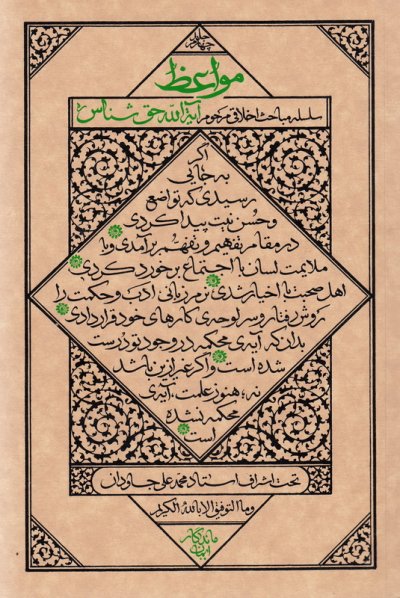 جلد چهارم
مواعظ
سلسله مباحث اخلاقی مرحوم آیة الله حق شناس
اگر
به جایی
رسیدی که تواضع
و حسن نیت پیدا کردی
در مقام تفهیم و تفهّم برآمدی و با
ملایمت لسان با اجتماع برخورد کردی
اهل صحبت با اخیار شدی نرم زبانی ادب و حکمت را
روش رفتار و سرلوحه‌ی کارهای خود قرار دادی
بدان که آیه‌ی محکمه در وجود تو درست
شده است و اگر غیر از این باشد
نه، هنوز علمت، آیه‌ی
محکمه نشده
است
تحت اشراف استاد محمد علی جاودان
وما التوفیق الا بالله الکریم
ماندگار